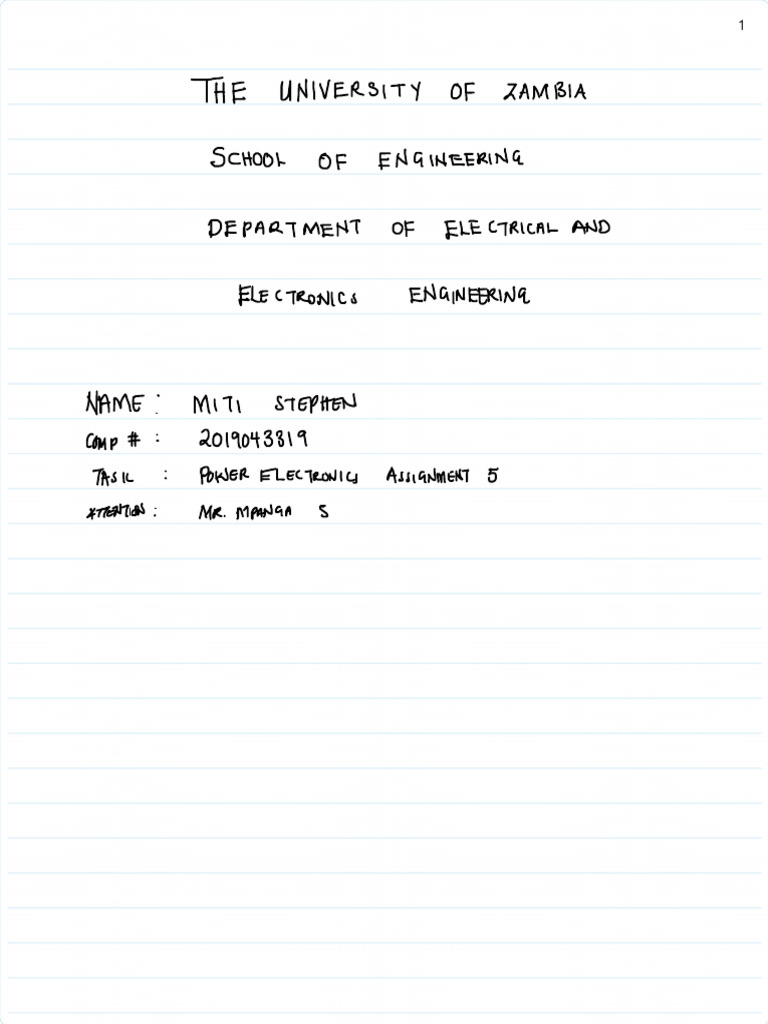 1
THE UNIVERSITY OF ZAMBIA
SCHOOL OF ENGINEERING
DEPARTMENT OF ELECTRICAL AND
ELECTRONICS ENGINEERING
NAME: MITI STEPHEN
COMP # : 2019043319
TASK : POWER ELECTRONICS ASSIGNMENT 5
ATTENTION: MR. MPANGA S